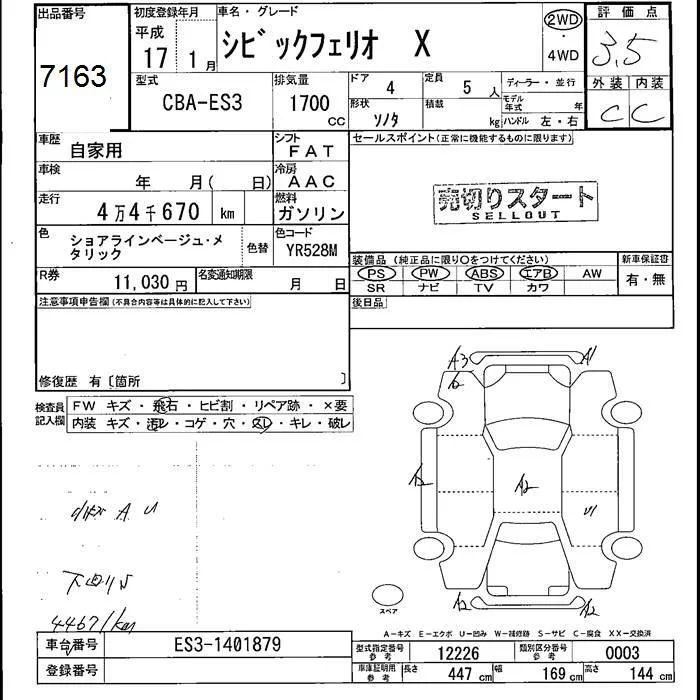 出品番号
7163
初度登録年月
平成
17 1月
車名・グレード
シビックフェリオ X
2WD
・
4WD
評価点
3.5
外装 内装
C C
型式
CBA-ES3
排気量
1700
CC
ドア
4
定員
5 人
形状
ソノタ
積載
kg
ディーラー・並行
モデル年式 年
ハンドル 左・右
車歴
自家用
シフト
FAT
車検
年 月( 日)
冷房
AAC
走行
4万4千670 km
燃料
ガソリン
色
ショアラインベージュ・メタリック
色替
色コード
YR528M
R券
11,030円
名変通知期限
月 日
セールスポイント(正常に機能するものに限ります)
売切りスタート
SELLOUT
装備品(純正品に限り○をつけてください)
PS PW ABS エアB AW
SR ナビ TV カワ
新車保証書
有・無
後日品
注意事項申告欄(不具合内容等は具体的に記入して下さい)
修復歴 有〔箇所 〕
検査員記入欄
FW キズ・飛石・ヒビ割・リペア跡・×要
内装 キズ・汚レ・コゲ・穴・スレ・キレ・破レ
A3 A1
A2 A2
A2 A2
小キズ A U
下回りS
44671km
スペア
A-キズ E-エクボ U-凹み W-補修跡 S-サビ C-腐食 XX-交換済
車台番号
ES3-1401879
登録番号
型式指定番号
参考
12226
類別区分番号
参考
0003
車庫証明用
参考
長さ
447 cm
幅
169 cm
高さ
144 cm